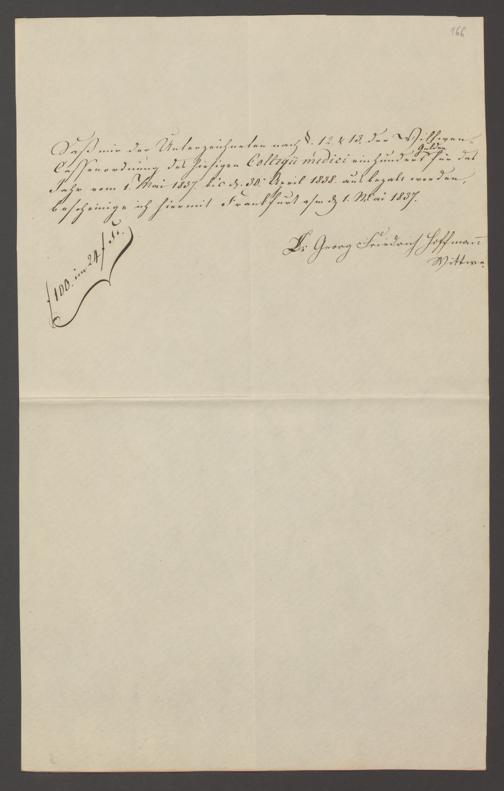 166
Daß mir der Unterzeichneten nach §. 12 & 13. der Wittwen-
Cassenordnung des hiesigen Collegii medici einhundert Gulden für das
Jahr vom 1. Mai 1837 bis d. 30. April 1838. ausbezahlt worden,
bescheinige ich hiermit Frankfurt a/m d. 1. Mai 1837.
Dr Georg Friedrich Hoffmann
Wittwe.
f 100. im 24 f Fs.